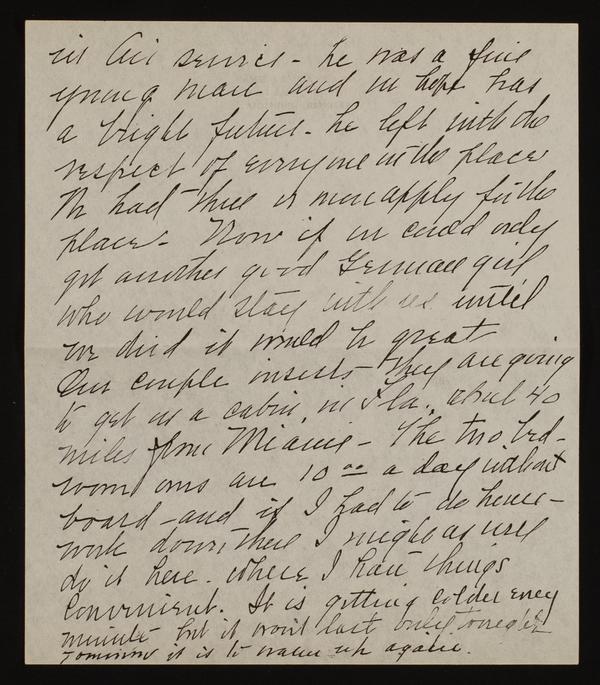 in Air service - he was a fine
young man and we hope has
a bright future - he left with the
respect of everyone in the place
We had three or men apply for the
place - Now if we could only
get another good German girl
who would stay with us until
we died it would be great
Our couple insists they are going
to get us a cabin, in Fla. about 40
miles from Miami - The two bed-
room ones are 10 00 a day without
board - and if I had to do house-
work down there I might as well
do it here. Where I have things
convenient. It is getting colder every
minute but it won't last only tonight
Tomorrow it is to warm up again.